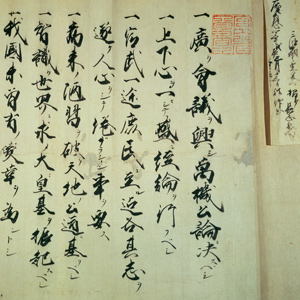 一廣ク會議ヲ興シ萬機公論ニ決スヘシ
一上下心ヲ一ニシテ盛ニ經綸ヲ行フヘシ
一官武一途庶民ニ至ル迄各其志ヲ
遂ケ人心ヲシテ倦マサラシメン事ヲ要ス
一舊来ノ陋習ヲ破リ天地ノ公道ニ基クヘシ
一智識ヲ世界ニ求メ大ニ皇基ヲ振起スヘシ
一我國未曾有ノ變革ヲ為ントシ